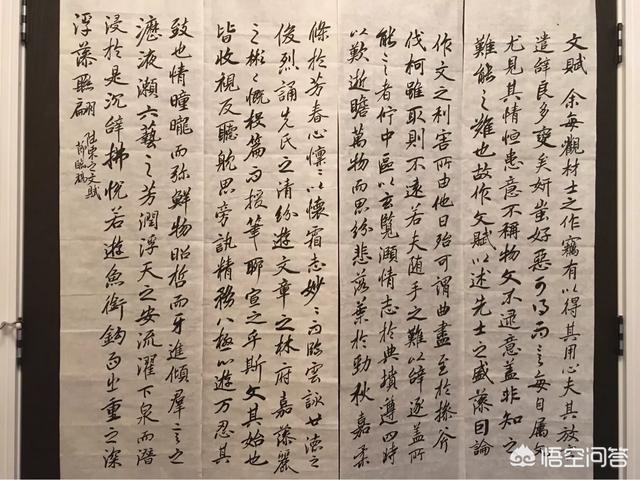 文賦 余每觀材士之作竊有以得其用心夫其放言
遣辭良多變矣妍蚩好惡可得而言每自屬文
尤見其情恒患意不稱物文不逮意蓋非知之
難能之難也故作文賦以述先士之盛藻因論
作文之利害所由他日殆可謂曲盡至於操斧
伐柯雖取則不遠若夫随手之難以辭逐蓋所
能言者佇中區以玄覽頤情志於典墳遵四時
以歎逝瞻萬物而思紛悲落葉於勁秋嘉柔
條於芳春心懍〻以懷霜志妙〻而臨雲詠世德之
俊烈誦先氏之清紛遊文章之林府嘉藻麗
之彬〻慨投篇而援筆聊宣之乎斯文其始也
皆收視反聽耽思旁訊精務八極心遊万忍其
致也情曈曨而弥鮮物昭晢而互進傾羣言之
瀝液漱六藝之芳潤浮天之安流濯下泉而潛
浸於是沉辭拂悅若遊魚銜鈎而出重之深
浮藻聯翩
陸柬之文賦
節臨稿
悟空问答